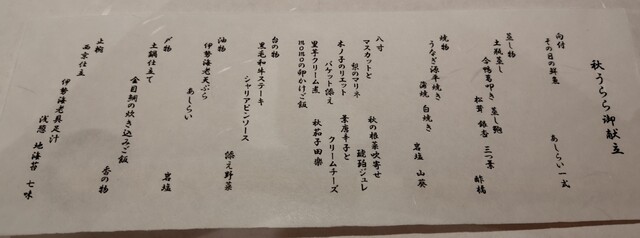 秋うらら御献立
向付
その日の鮮魚　あしらい一式
蒸し物
土瓶蒸し
合鴨葛叩き　蒸し鮑
松茸　銀杏　三つ葉　酢橘
焼物
うなぎ源平焼き
蒲焼　白焼き
岩塩　山葵
八寸
マスカットと
梨のマリネ　秋の根菜吹寄せ
琥珀ジュレ
木ノ子のリエット　葉唐辛子と
バケット添え　クリームチーズ
里芋クリーム煮　秋茄子田楽
momoの卵かけご飯
台の物
黒毛和牛ステーキ
シャリアピンソース
添え野菜
油物
伊勢海老天ぷら
あしらい
岩塩
〆物
土鍋仕立て
金目鯛の炊き込みご飯
香の物
止椀
西京仕立
伊勢海老具足汁
浅葱　地海苔　七味